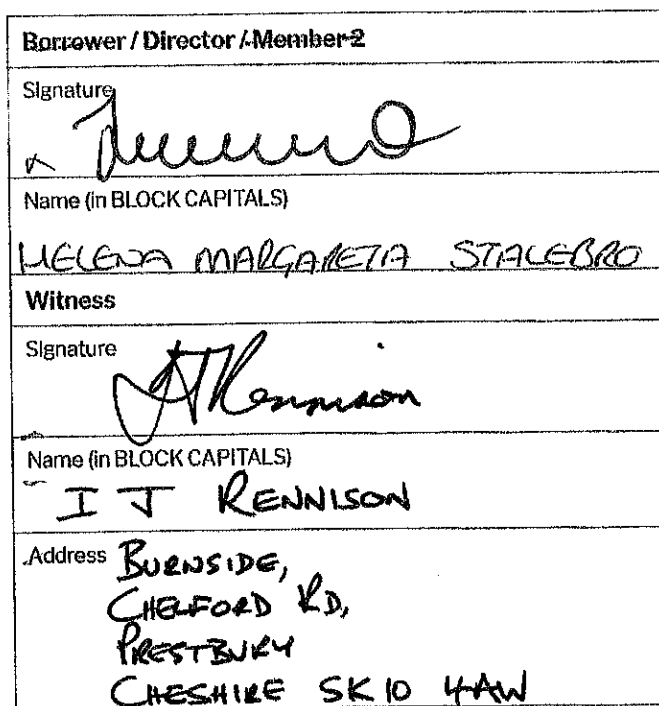 Borrower / Director / Member 2
Signature
x
Name (in BLOCK CAPITALS)
HELENA MARGARETA STALEBRO
Witness
Signature
IJRennison
Name (in BLOCK CAPITALS)
I J RENNISON
Address BURNSIDE,
CHELFORD RD,
PRESTBURY
CHESHIRE SK10 4AW